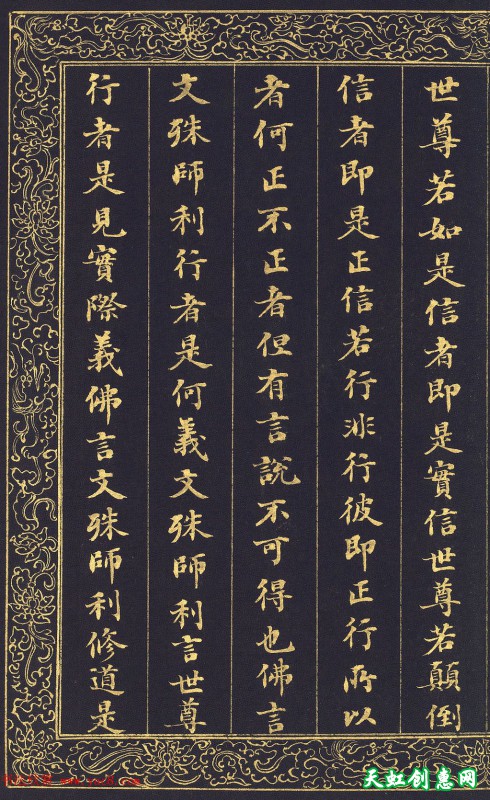 世尊若如是信者即是實信世尊若顛倒
信者即是正信若行非行彼即正行所以
者何正不正者但有言說不可得也佛言
文殊師利行者是何義文殊師利言世尊
行者是見實際義佛言文殊師利修道是
天虹创惠网